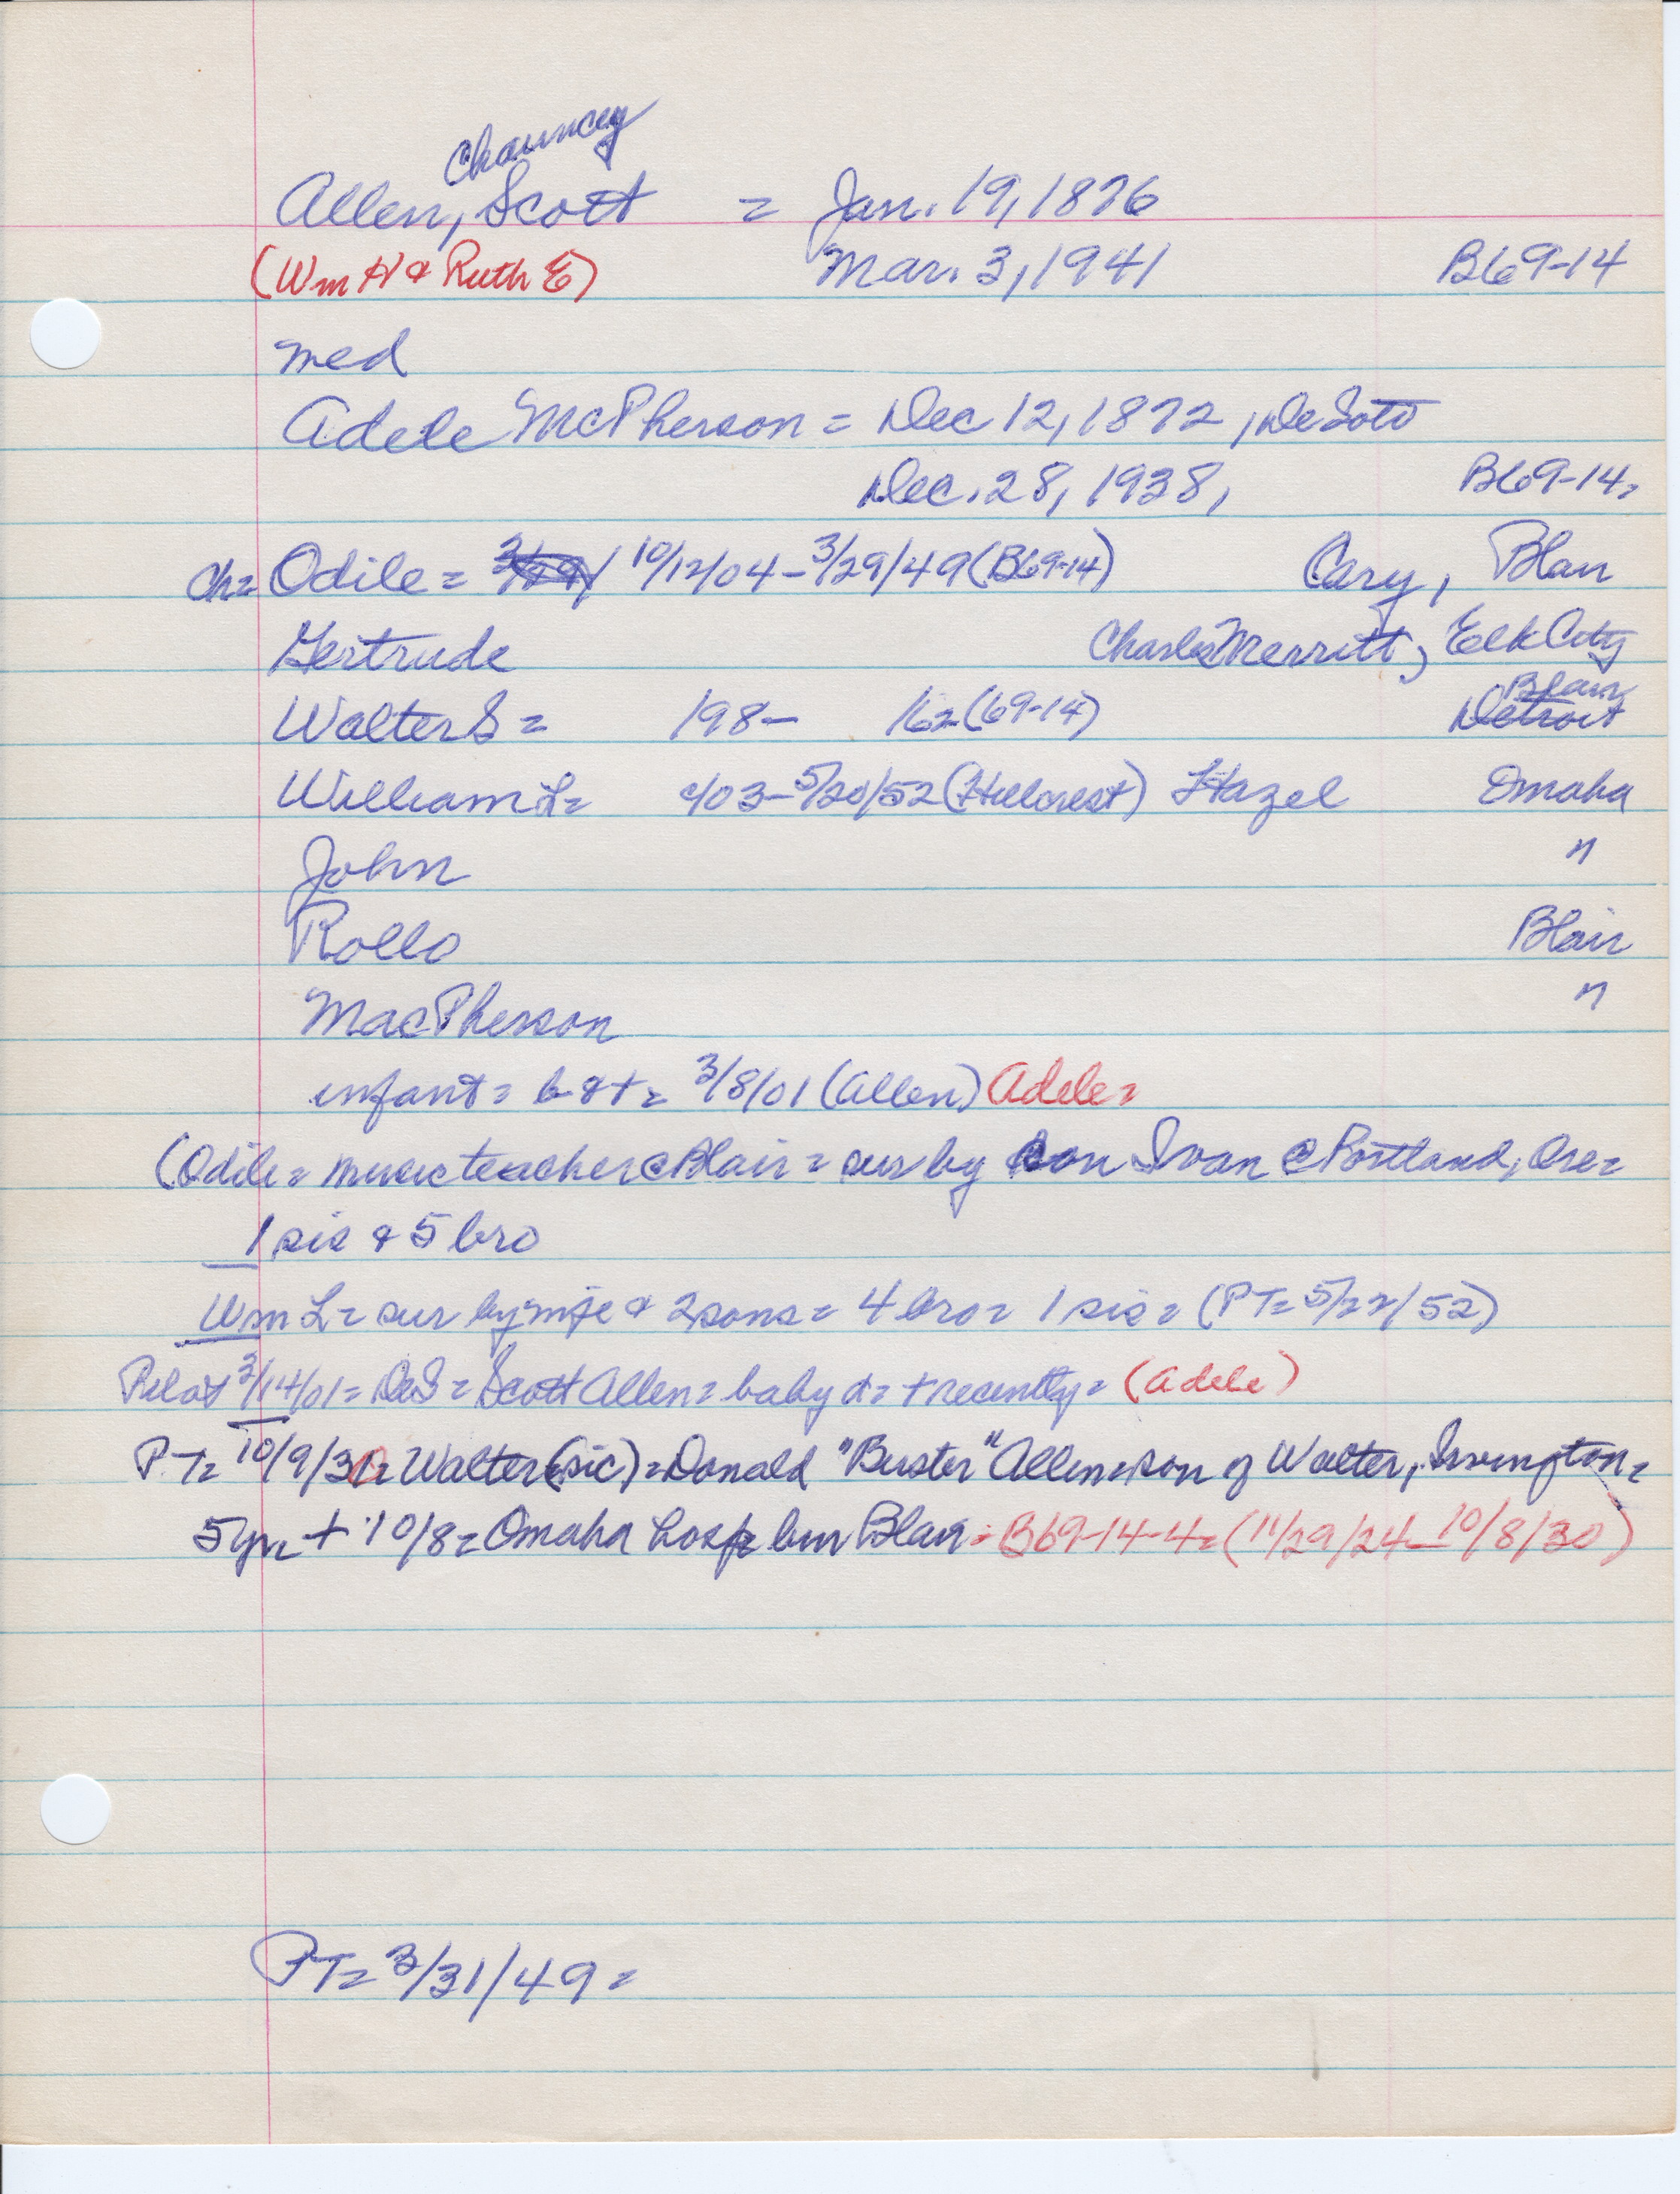 Chauncey
Allen, Scott = Jan. 19, 1876
(Wm H & Ruth E) Mar. 3, 1941 B69-14
med
Adele McPherson = Dec 12, 1872, DeSoto
Dec. 28, 1938, B69-14=
ch= Odile = 10/12/04-3/29/49 (B69-14) Cary, Blair
Gertrude Charles Merritt, Elk City
Blair
Walter S = 198- 162 (69-14) Detroit
William L= c/03-5/20/52 (Hillcrest) Hazel Omaha
John "
Rollo Blair
MacPherson "
infant = b & + = 3/8/01 (Allen) Adele=
(Odile = music teacher @ Blair = sur by son Ivan @ Portland, Ore=
1 sis & 5 bro
Wm L = sur by wife & 2 sons = 4 bro = 1 sis = (PT= 5/22/52)
Pilot 3/14/01 = DeS = Scott Allen = baby d = + recently = (Adele)
PT= 10/9/30= Walter (sic) = Donald "Buster" Allen = son of Walter, Irvington=
5 yr = + 10/8 = Omaha hosp = bur Blair = B69-14-4= (11/29/24-10/8/30)
PT= 3/31/49 =